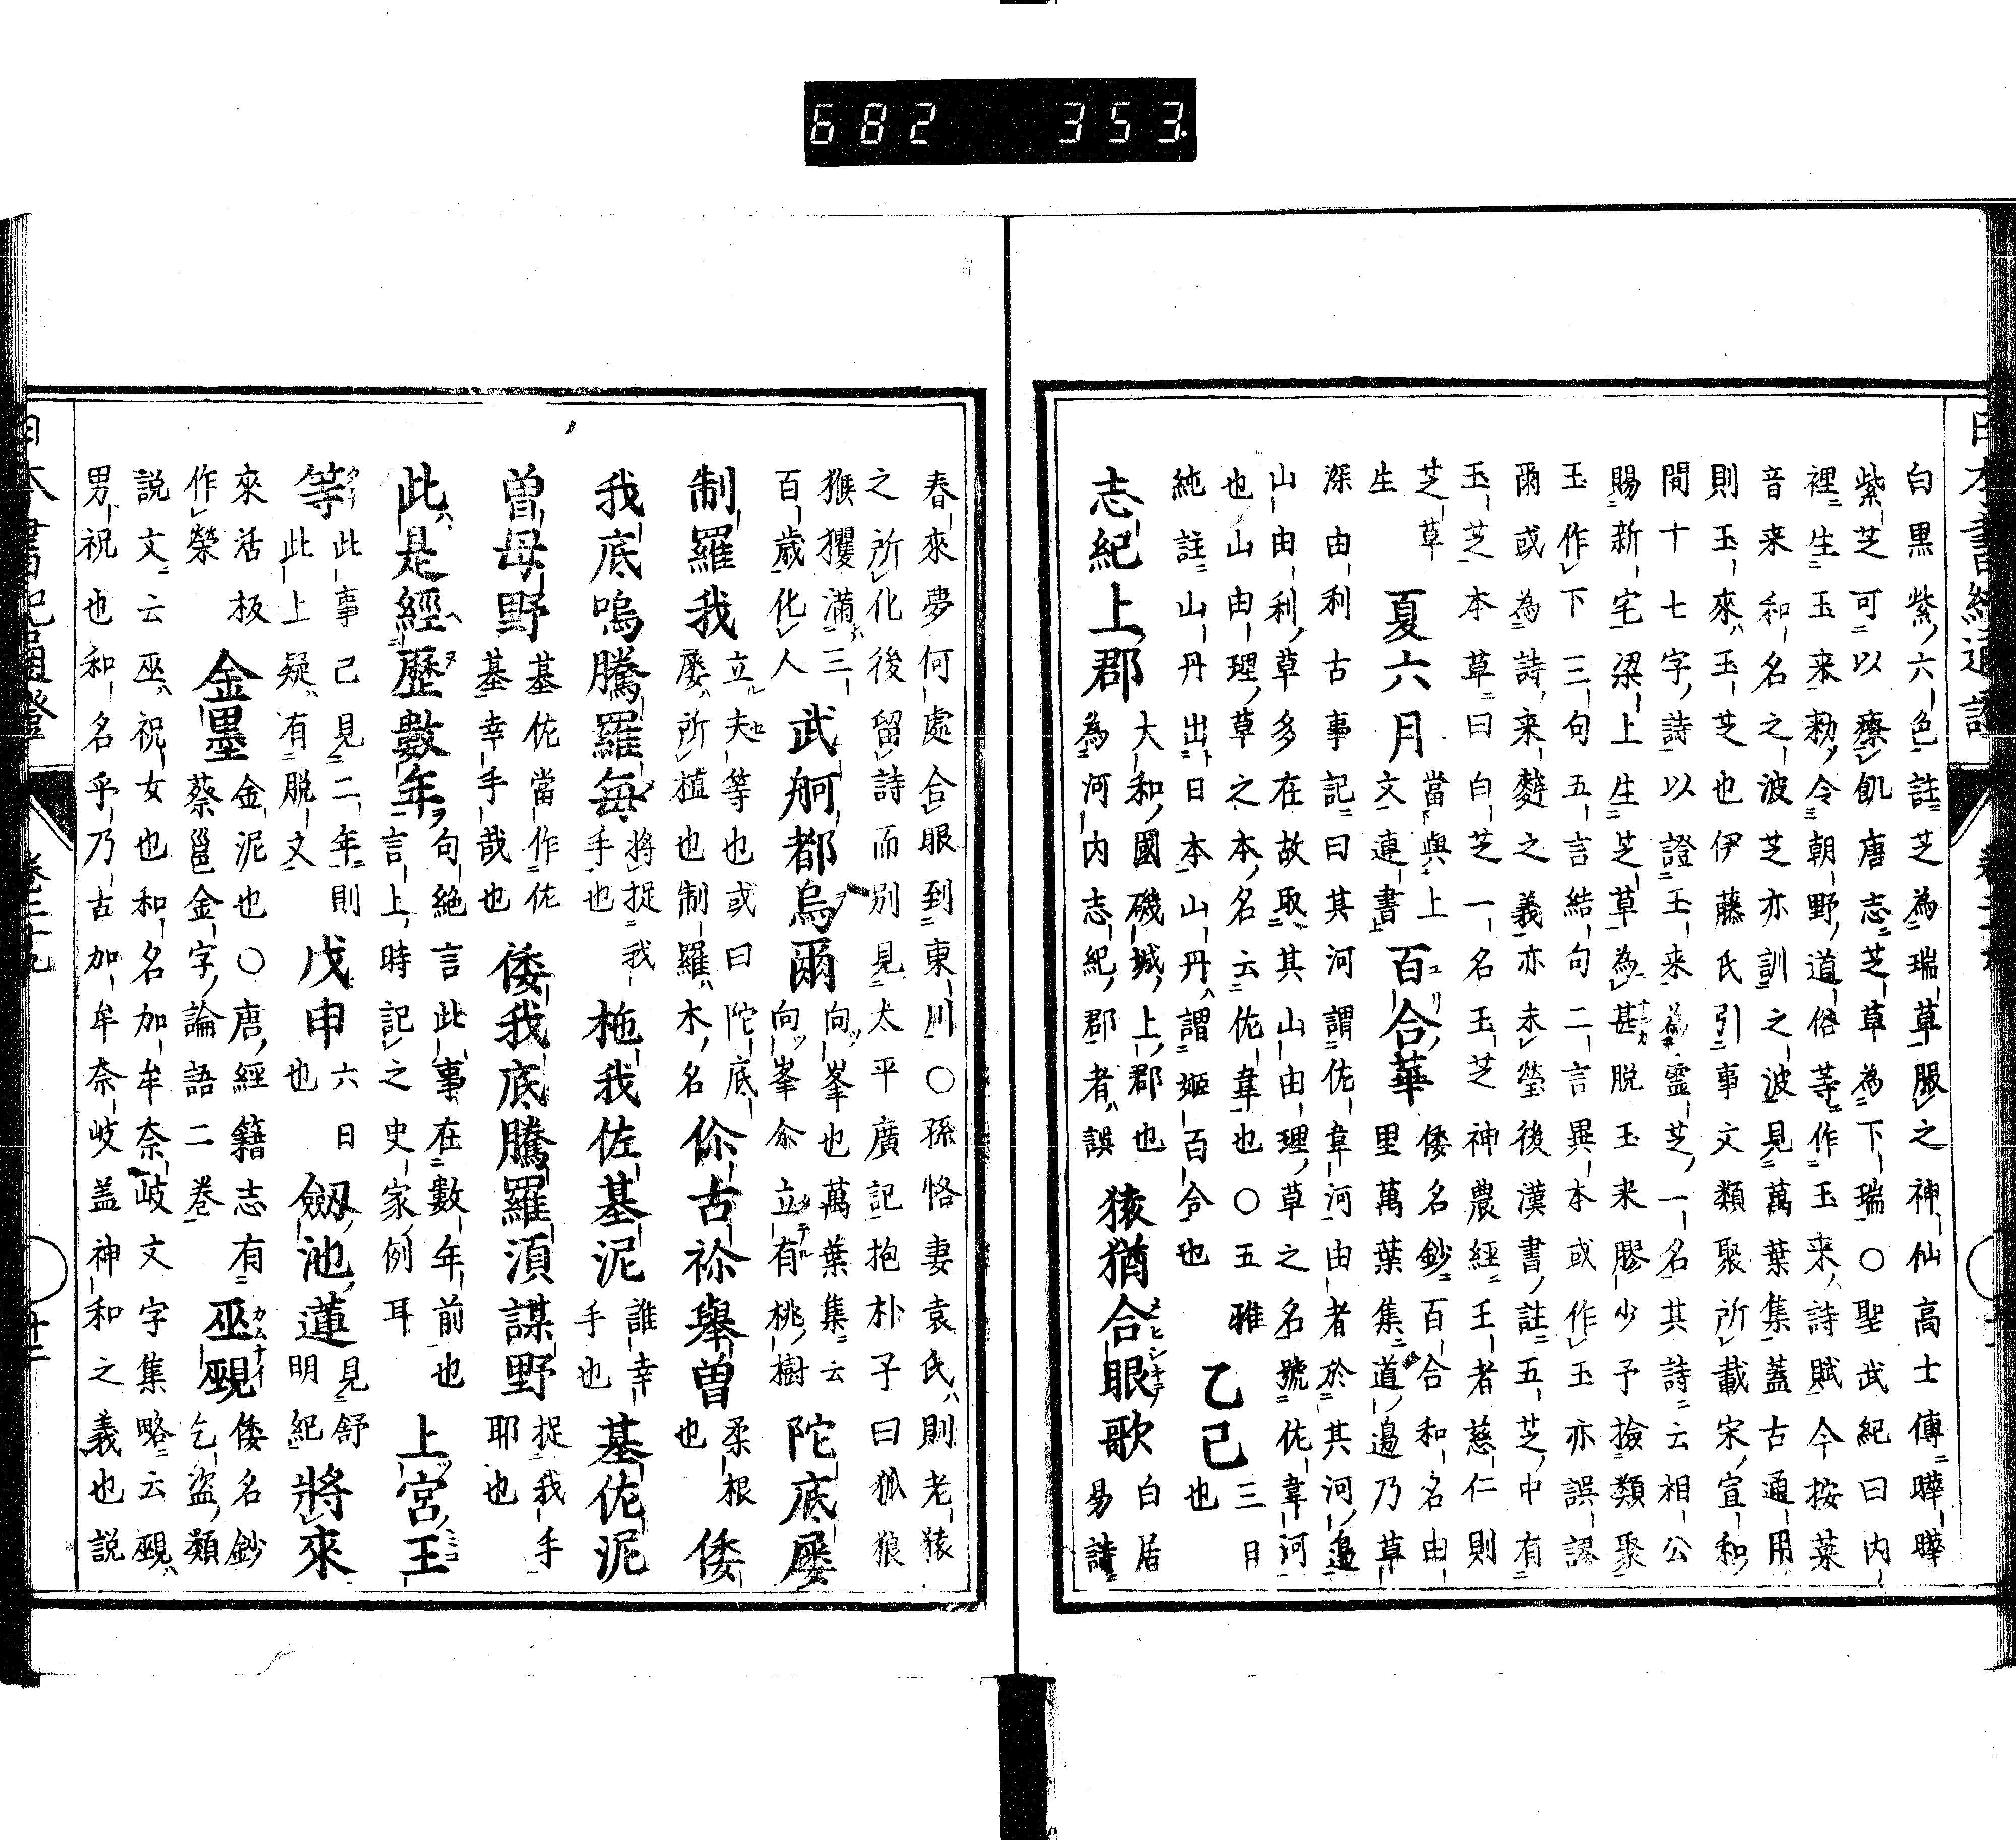 682 353
白黒紫六色註芝為瑞草服之神仙高士傳曄曄
紫芝可以療飢唐志芝草為下瑞○聖武紀曰内
裡生玉来勑令朝野道俗等作玉来詩賦今按菜
音来和名之波芝亦訓之波見萬葉集蓋古通用
則玉來玉芝也伊藤氏引事文類聚所載宋宣和
間十七字詩以證玉来為靈芝一名其詩云相公
賜新宅梁上生芝草為甚脱玉来膠少予撿類聚
玉作下三句五言結句二言異本或作玉亦誤謬
爾或為詩来麰之義亦未瑩後漢書註五芝中有
玉芝本草曰白芝一名玉芝神農經玉者慈仁則
芝草
生
夏六月
當與上
文連書
百合華
倭名鈔百合和名由
里萬葉集道邉乃草
深由利古事記曰其河謂佐韋河由者於其河邉
山由利草多在故取其山由理草之名號佐韋河
也山由理草之本名云佐韋也○五雅
純註山丹出日本山丹謂姬百合也
乙己
三日
也
志紀上郡
大和國磯城上郡也
為河内志紀郡者誤
猿猶合眼歌
白居
易詩
春來夢何處合眼到東川○孫恪妻袁氏則老猿
之所化後留詩而別見太平廣記抱朴子曰狐狼
猴玃滿三
百歳化人
武舸都烏爾
向峯也萬葉集云
向峯尒立有桃樹
陀底屡
制羅我
立夫等也或曰陀底
屡所植也制羅木名
伱古祢舉曽
柔根
也
倭
我底嗚騰羅毎
將捉我
手也
柂我佐基泥
誰幸
手也
基佐泥
曽母野
基佐當作佐
基幸手哉也
倭我底騰羅湏謀野
捉我手
耶也
此是經歷數年
句絶言此事在數年前也
言上時記之史家例耳
上宮王
等
此事已見二年則
此上疑有脱文
戊申
六日
也
劔池蓮
見舒
明紀
將來
來活板
作榮
金墨
金泥也○唐經籍志有
蔡邕金字論語二巻
巫覡
倭名鈔
乞盗類
説文云巫祝女也和名加牟奈岐文字集略云覡
男祝也和名乎乃古加牟奈岐盖神和之義也説